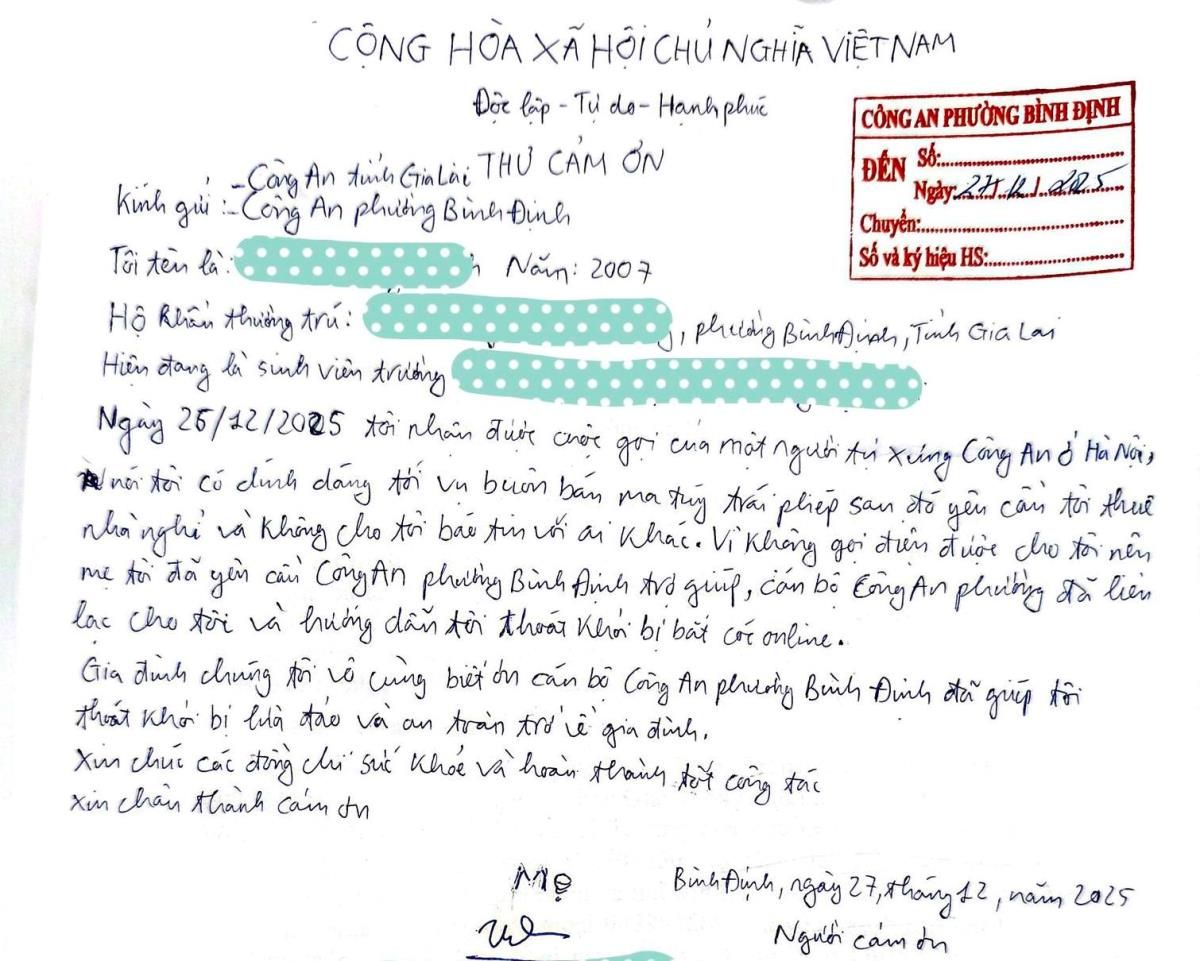 CỘNG HÒA XÃ HỘI CHỦ NGHĨA VIỆT NAM
Độc lập - Tự do - Hạnh phúc
THƯ CẢM ƠN
CÔNG AN PHƯỜNG BÌNH ĐỊNH
ĐẾN
Số:
Ngày: 27/12/2025
Chuyển:
Số và ký hiệu HS:
- Công An tỉnh Gia Lai
Kính gửi: - Công An phường Bình Định
Tôi tên là: Năm: 2007
Hộ khẩu thường trú: , phường Bình Định, Tỉnh Gia Lai
Hiện đang là sinh viên trường
Ngày 25/12/2025 tôi nhận được cuộc gọi của một người tự xưng Công An ở Hà Nội,
nói tôi có dính dáng tới vụ buôn bán ma túy trái phép sau đó yêu cầu tôi thuê
nhà nghỉ và không cho tôi báo tin với ai khác. Vì không gọi điện được cho tôi nên
mẹ tôi đã yêu cầu Công An phường Bình Định trợ giúp, cán bộ Công An phường đã liên
lạc cho tôi và hướng dẫn tôi thoát khỏi bị bắt cóc online.
Gia đình chúng tôi vô cùng biết ơn cán bộ Công An phường Bình Định đã giúp tôi
thoát khỏi bị lừa đảo và an toàn trở về gia đình.
Xin chúc các đồng chí sức khỏe và hoàn thành tốt công tác
Xin chân thành cảm ơn
Mẹ
Bình Định, ngày 27, tháng 12, năm 2025
Người cảm ơn